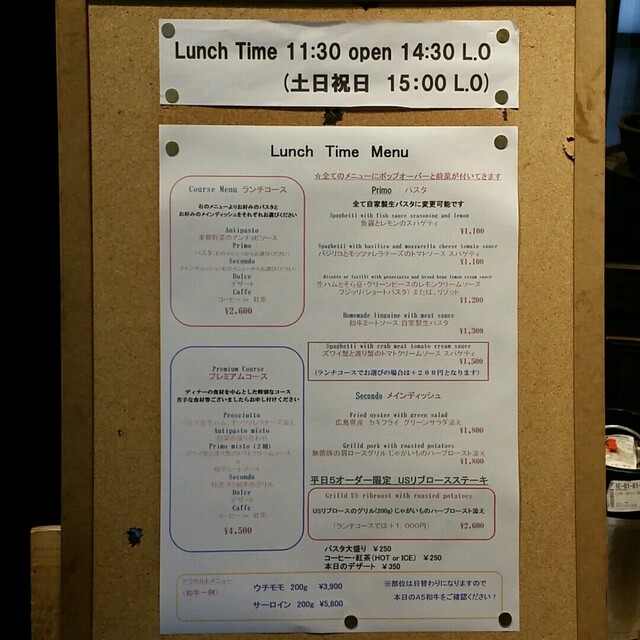 Lunch Time 11:30 open 14:30 L.O
(土日祝日 15:00 L.O)
Lunch Time Menu
☆全てのメニューにポップオーバーと前菜が付いてきます
Course Menu ランチコース
右のメニューよりお好みのパスタと
お好みのメインディッシュをそれぞれお選びください
Antipasto
季節野菜のアンチョビソース
Primo
パスタ(右のメニューからお選びください)
Secondo
メインディッシュ(右のメニューからお選びください)
Dolce
デザート
Caffe
コーヒー or 紅茶
¥2,600
Premium Course
プレミアムコース
ディナーの食材を中心とした特別なコース
苦手な食材等ございましたらお申し付けください
Prosciutto
パルマ産生ハム、モッツァレラチーズ添え
Antipasto misto
前菜の盛り合わせ
Primo misto (2種)
ズワイ蟹と渡り蟹のトマトクリームソース
&
和牛ミートソース
Secondo
特選 A5和牛のグリル
Dolce
デザート
Caffe
コーヒー or 紅茶
¥4,500
Primo パスタ
全て自家製生パスタに変更可能です
Spaghetti with fish sauce seasoning and lemon
魚醤とレモンのスパゲティ
¥1,100
Spaghetti with basilico and mozzarella cheese tomato sauce
バジリコとモッツァレラチーズのトマトソース スパゲティ
¥1,100
Risotto or fusilli with prosciutto and broad bean lemon cream sauce
生ハムとそら豆・グリーンピースのレモンクリームソース
フジッリ(ショートパスタ) または、リゾット
¥1,200
Homemade linguine with meat sauce
和牛ミートソース 自家製生パスタ
¥1,300
Spaghetti with crab meat tomato cream sauce
ズワイ蟹と渡り蟹のトマトクリームソース スパゲティ
¥1,500
(ランチコースでお選びの場合は+200円となります)
Secondo メインディッシュ
Fried oyster with green salad
広島県産 カキフライ グリーンサラダ添え
¥1,800
Grilld pork with roasted potatoes
無菌豚の肩ロースグリル じゃがいものハーブロースト添え
¥1,800
平日5オーダー限定 USリブロースステーキ
Grilld US ribroast with roasted potatoes
USリブロースのグリル(200g)じゃがいものハーブロースト添え
(ランチコースでは+1,000円) ¥2,600
パスタ大盛り ¥250
コーヒー・紅茶(HOT or ICE) ¥250
本日のデザート ¥350
アラカルトメニュー
(和牛一例)
ウチモモ 200g ¥3,900
サーロイン 200g ¥5,800
※部位は日替わりになりますので
本日のA5和牛をご確認ください!